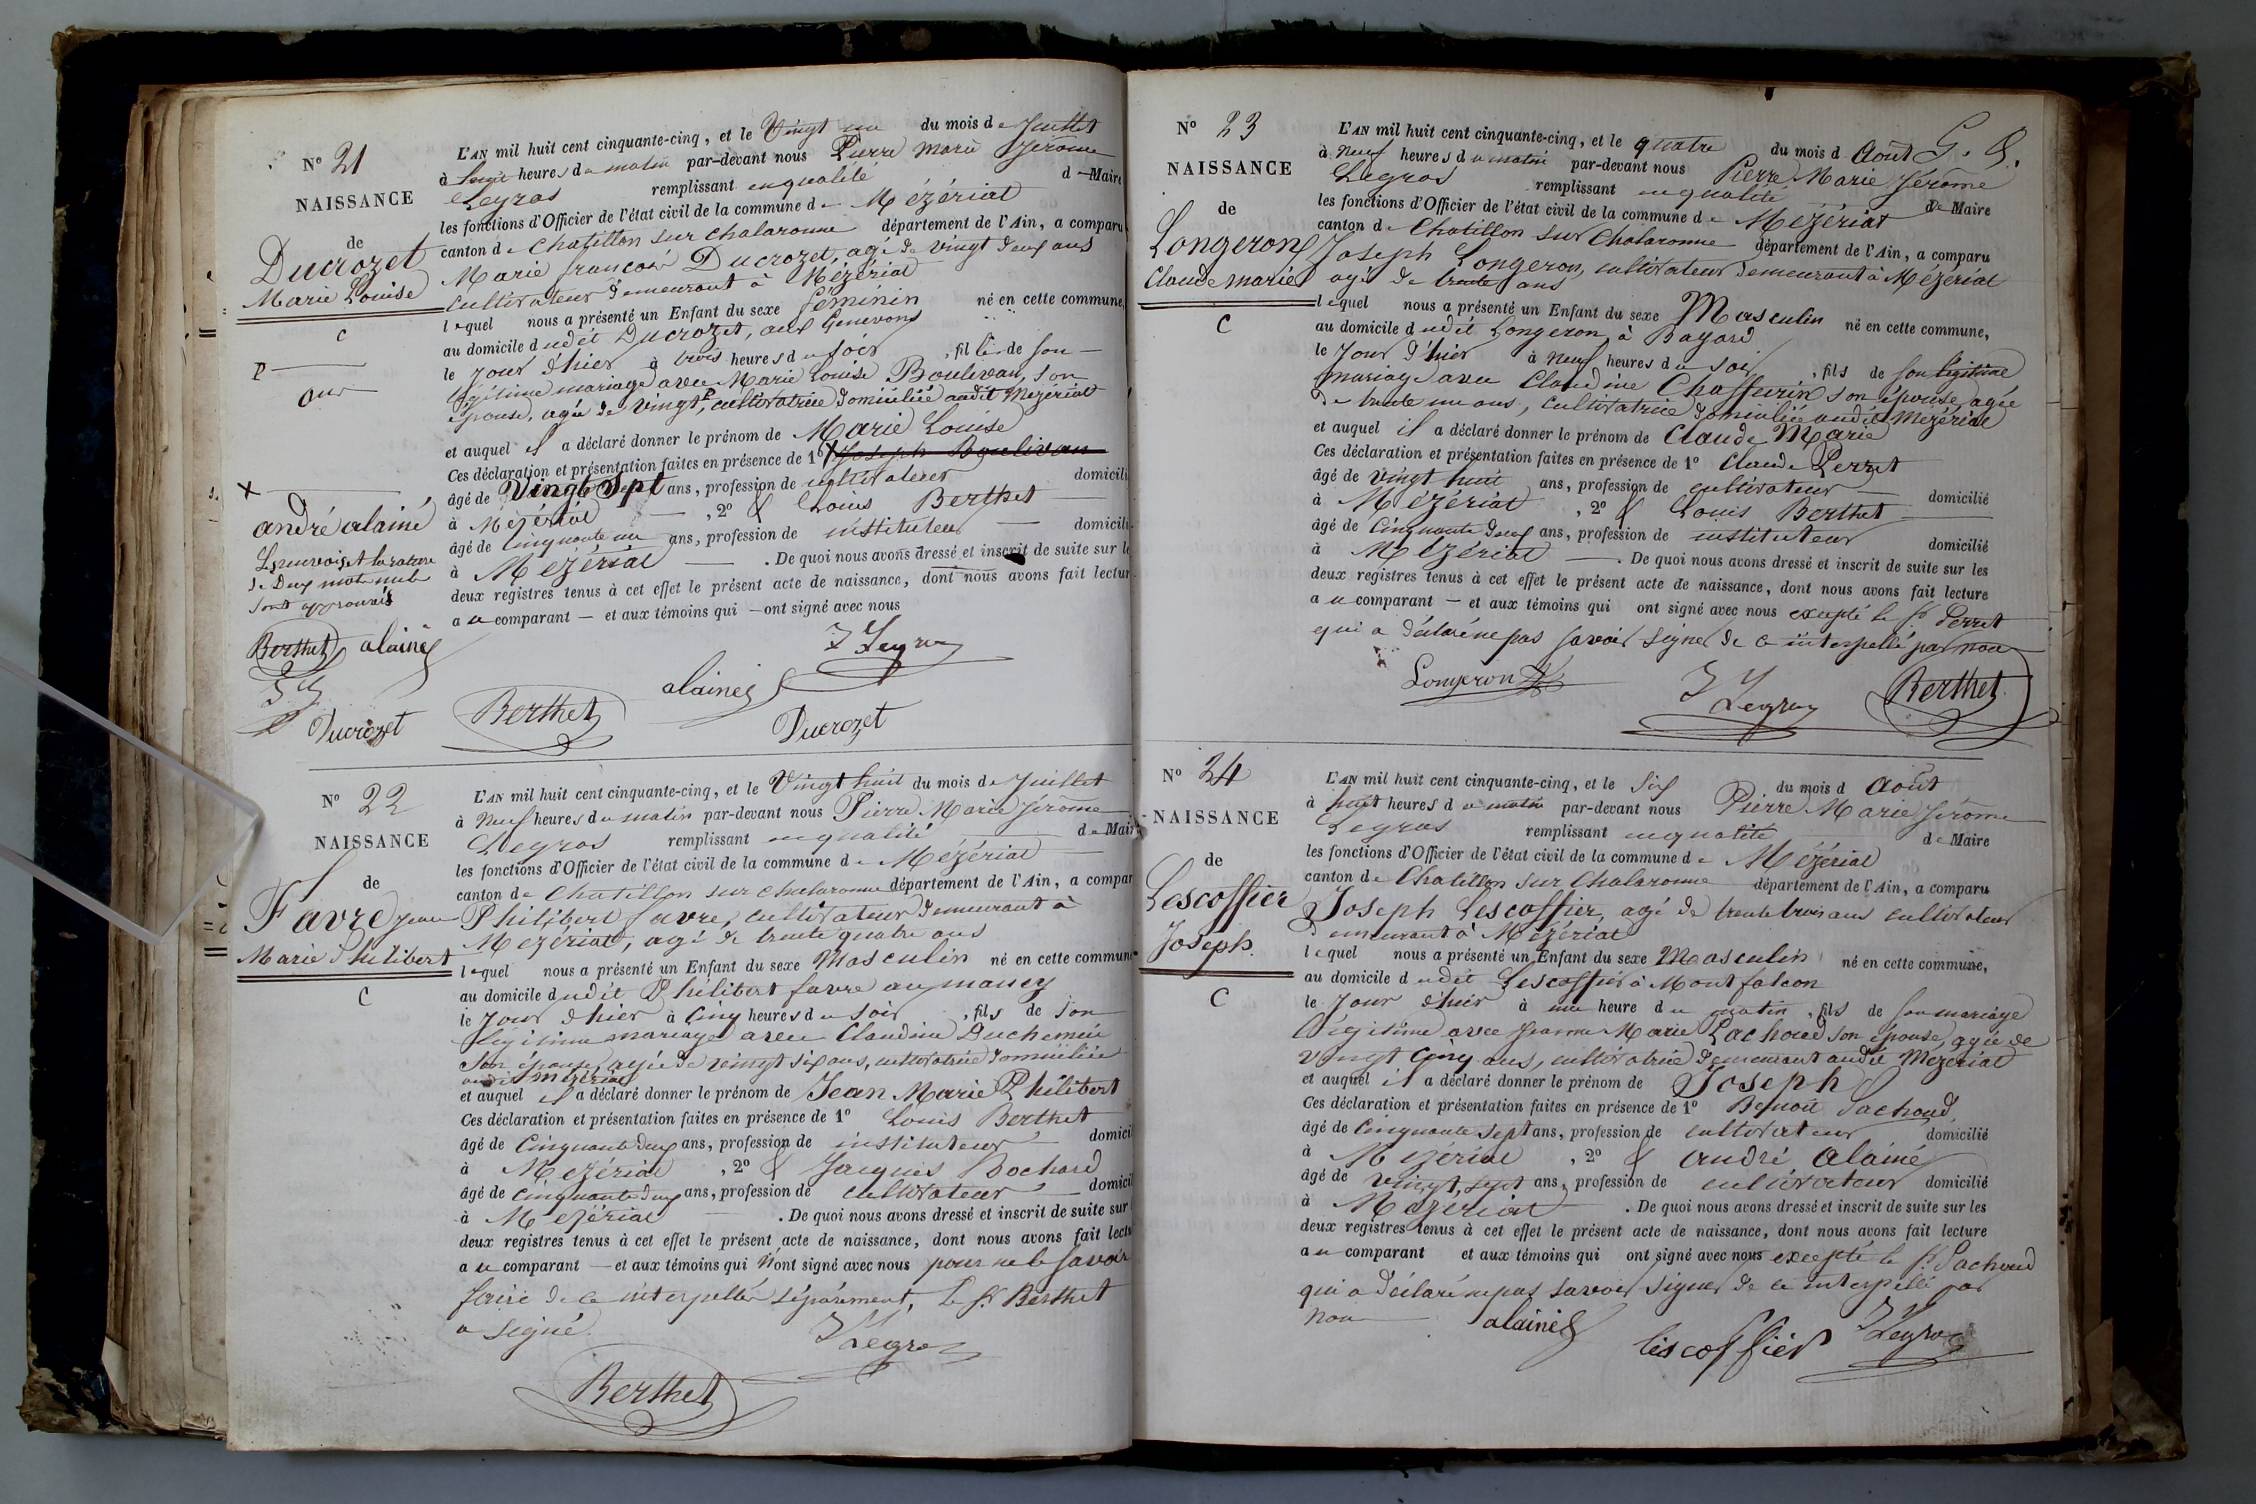 N° 21
NAISSANCE
de
Ducrozet
Marie Louise
C
P
L'AN mil huit cent cinquante-cinq, et le Vingt un du mois de Juillet
à heures du matin par-devant nous Pierre Marie Jérôme
Legros remplissant en qualité de Maire
les fonctions d'Officier de l'état civil de la commune de Mézériat
canton de Chatillon sur Chalaronne département de l'Ain, a comparu
Marie françois Ducrozet, agé de vingt deux ans
cultivateur demeurant à Mézériat
lequel nous a présenté un Enfant du sexe féminin né en cette commune,
au domicile dudit Ducrozet, aux Genevons
le jour d'hier à trois heures du soir, fille de son
légitime mariage avec Marie Louise Boulivan, son
épouse, agée de vingt, cultivatrice domiciliée audit Mézériat
et auquel il a déclaré donner le prénom de Marie Louise
Ces déclaration et présentation faites en présence de 1° Joseph Boulivan
âgé de Vingt Sept ans, profession de cultivateur domicili
à Mézériat, 2° & Louis Berthet
âgé de cinquante un ans, profession de instituteur domicili
à Mézériat. De quoi nous avons dressé et inscrit de suite sur le
deux registres tenus à cet effet le présent acte de naissance, dont nous avons fait lectur
au comparant — et aux témoins qui — ont signé avec nous
x
andré alainé
de Deux mots nuls
sont approuvés
Berthet alainé
Ducrozet
J Legros
alainé
Berthet
Ducrozet
N° 22
NAISSANCE
de
Favre Jean
Marie Philibert
C
L'AN mil huit cent cinquante-cinq, et le Vingt huit du mois de Juillet
à Neuf heures du matin par-devant nous Pierre Marie Jérome
Legros remplissant en qualité de Mair
les fonctions d'Officier de l'état civil de la commune de Mézériat
canton de Chatillon sur Chalaronne département de l'Ain, a compar
Philibert favre, cultivateur demeurant à
Mézériat, agé de trente quatre ans
lequel nous a présenté un Enfant du sexe Masculin né en cette commune
au domicile dudit Philibert favre au mancy
le jour d'hier à Cinq heures du soir, fils de son
légitime mariage avec Claudine Duchemin
son épouse, agée de vingt six ans, cultivatrice domiciliée
audit Mézériat
et auquel il a déclaré donner le prénom de Jean Marie Philibert
Ces déclaration et présentation faites en présence de 1° Louis Berthet
âgé de Cinquante deux ans, profession de instituteur domici
à Mézériat, 2° & Jacques Bochard
âgé de cinquante deux ans, profession de cultivateur domici
à Mézériat. De quoi nous avons dressé et inscrit de suite sur
deux registres tenus à cet effet le présent acte de naissance, dont nous avons fait lectu
au comparant — et aux témoins qui n'ont signé avec nous pour ne le savoir
faire de ce interpellés séparément, le Sr Berthet
a signé
J Legros
Berthet
N° 23
NAISSANCE
de
Longeron
Claude marie
C
L'AN mil huit cent cinquante-cinq, et le quatre du mois d Août G. S.
à Neuf heures du matin par-devant nous Pierre Marie Jérôme
Legros remplissant en qualité de Maire
les fonctions d'Officier de l'état civil de la commune de Mézériat
canton de Chatillon sur Chalaronne département de l'Ain, a comparu
Joseph Longeron, cultivateur demeurant à Mézériat
agé de trente ans
lequel nous a présenté un Enfant du sexe Masculin né en cette commune,
au domicile dudit Longeron, à Bayard
le jour d'hier à Neuf heures du soir, fils de son légitime
mariage avec Claudine Chaffurin son épouse, agée
de trente un ans, cultivatrice domiciliée audit Mézériat
et auquel il a déclaré donner le prénom de Claude Marie
Ces déclaration et présentation faites en présence de 1° Claude Perret
âgé de vingt huit ans, profession de cultivateur domicilié
à Mézériat, 2° & Louis Berthet
âgé de Cinquante deux ans, profession de instituteur domicilié
à Mézériat. De quoi nous avons dressé et inscrit de suite sur les
deux registres tenus à cet effet le présent acte de naissance, dont nous avons fait lecture
au comparant — et aux témoins qui ont signé avec nous excepté le Sr Perret
qui a déclaré ne pas savoir signer de ce interpellé par nous
Longeron
J Legros
Berthet
N° 24
NAISSANCE
de
Lescoffier
Joseph.
C
L'AN mil huit cent cinquante-cinq, et le Six du mois d Août
à huit heures du matin par-devant nous Pierre Marie Jérôme
Legros remplissant en qualité de Maire
les fonctions d'Officier de l'état civil de la commune de Mézériat
canton de Chatillon sur Chalaronne département de l'Ain, a comparu
Joseph Lescoffier, agé de trente trois ans cultivateur
demeurant à Mézériat
lequel nous a présenté un Enfant du sexe Masculin né en cette commune,
au domicile dudit Lescoffier à Montfalcon
le jour d'hier à une heure du matin, fils de son mariage
légitime avec Jeanne Marie Pachoud son épouse, agée de
vingt Cinq ans, cultivatrice demeurant audit Mézériat
et auquel il a déclaré donner le prénom de Joseph
Ces déclaration et présentation faites en présence de 1° Benoît Pachoud
âgé de Cinquante sept ans, profession de cultivateur domicilié
à Mézériat, 2° & andré alainé
âgé de vingt sept ans, profession de cultivateur domicilié
à Mézériat. De quoi nous avons dressé et inscrit de suite sur les
deux registres tenus à cet effet le présent acte de naissance, dont nous avons fait lecture
au comparant et aux témoins qui ont signé avec nous excepté le Sr Pachoud
qui a déclaré ne pas savoir signer de ce interpellé par
nous
alainé
Lescoffier
J Legros